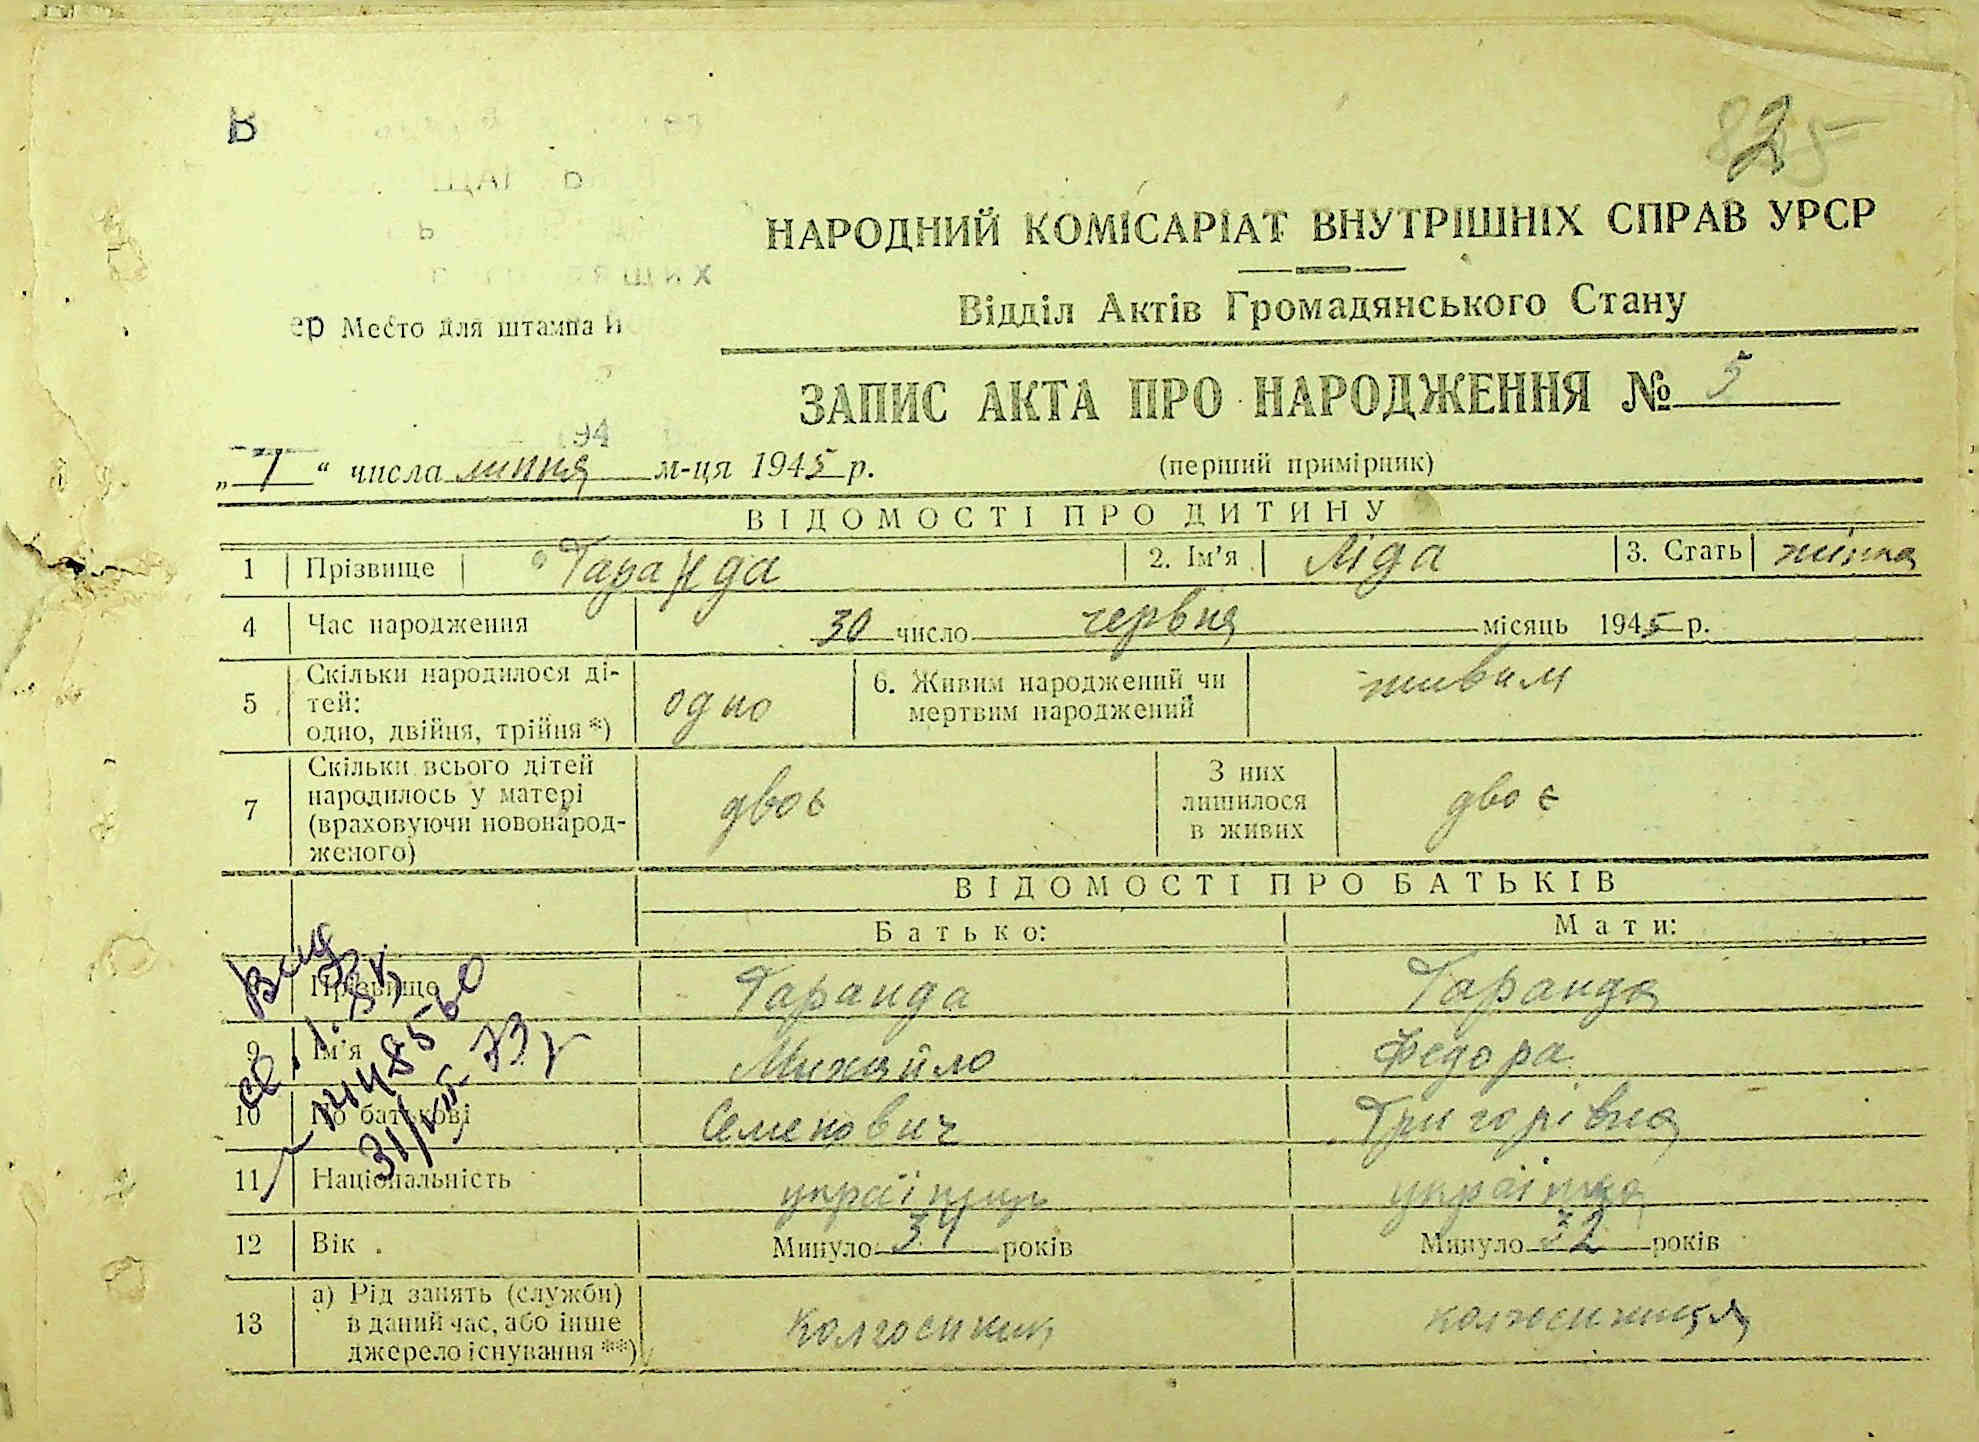 В
2
НАРОДНИЙ КОМІСАРІАТ ВНУТРІШНІХ СПРАВ УРСР
Відділ Актів Громадянського Стану
Место для штампа
ЗАПИС АКТА ПРО НАРОДЖЕННЯ № 5
194
„ 7 “ числа липня м-ця 1945 р. (перший примірник)
ВІДОМОСТІ ПРО ДИТИНУ
1 Прізвище Таранда 2. Ім'я Ліда 3. Стать жінка
4 Час народження 30 число червня місяць 1945 р.
5 Скільки народилося ді-
тей:
одно, двійня, трійня *) одно 6. Живим народжений чи
мертвим народжений живим
7 Скільки всього дітей
народилось у матері
(враховуючи новонарод-
женого) двоє З них
лишилося
в живих двоє
ВІДОМОСТІ ПРО БАТЬКІВ
Батько: Мати:
Прізвище Таранда Таранда
9 Ім'я Михайло Федора
10 По батькові Семенович Григорівна
11 Національність українець українка
12 Вік Минуло 34 років Минуло 32 років
13 а) Рід занять (служби)
в даний час, або інше
джерело існування **) колгоспник колгоспниця